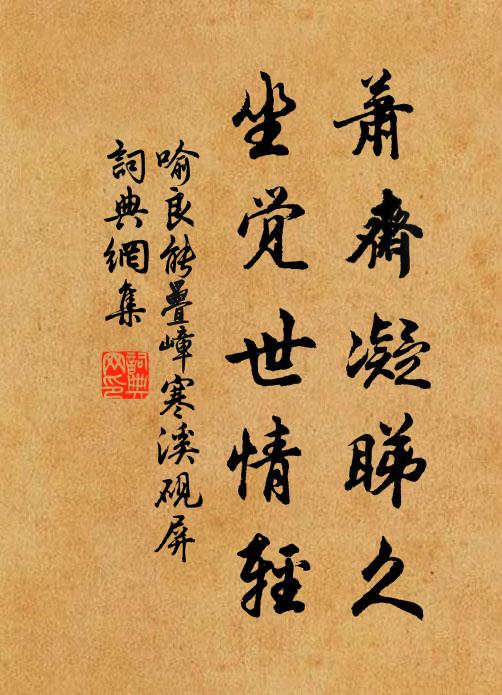 萧斋凝睇久
坐觉世情轻
喻良能叠嶂寒溪砚屏
词典网集
詞典
网印